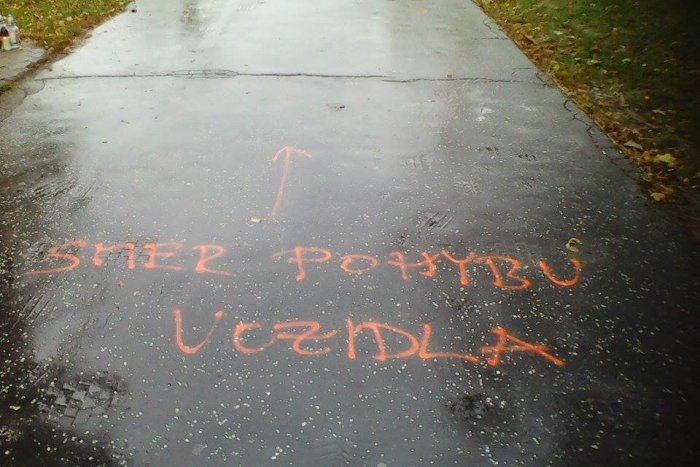 SMER POHYBU
VOZIDLA